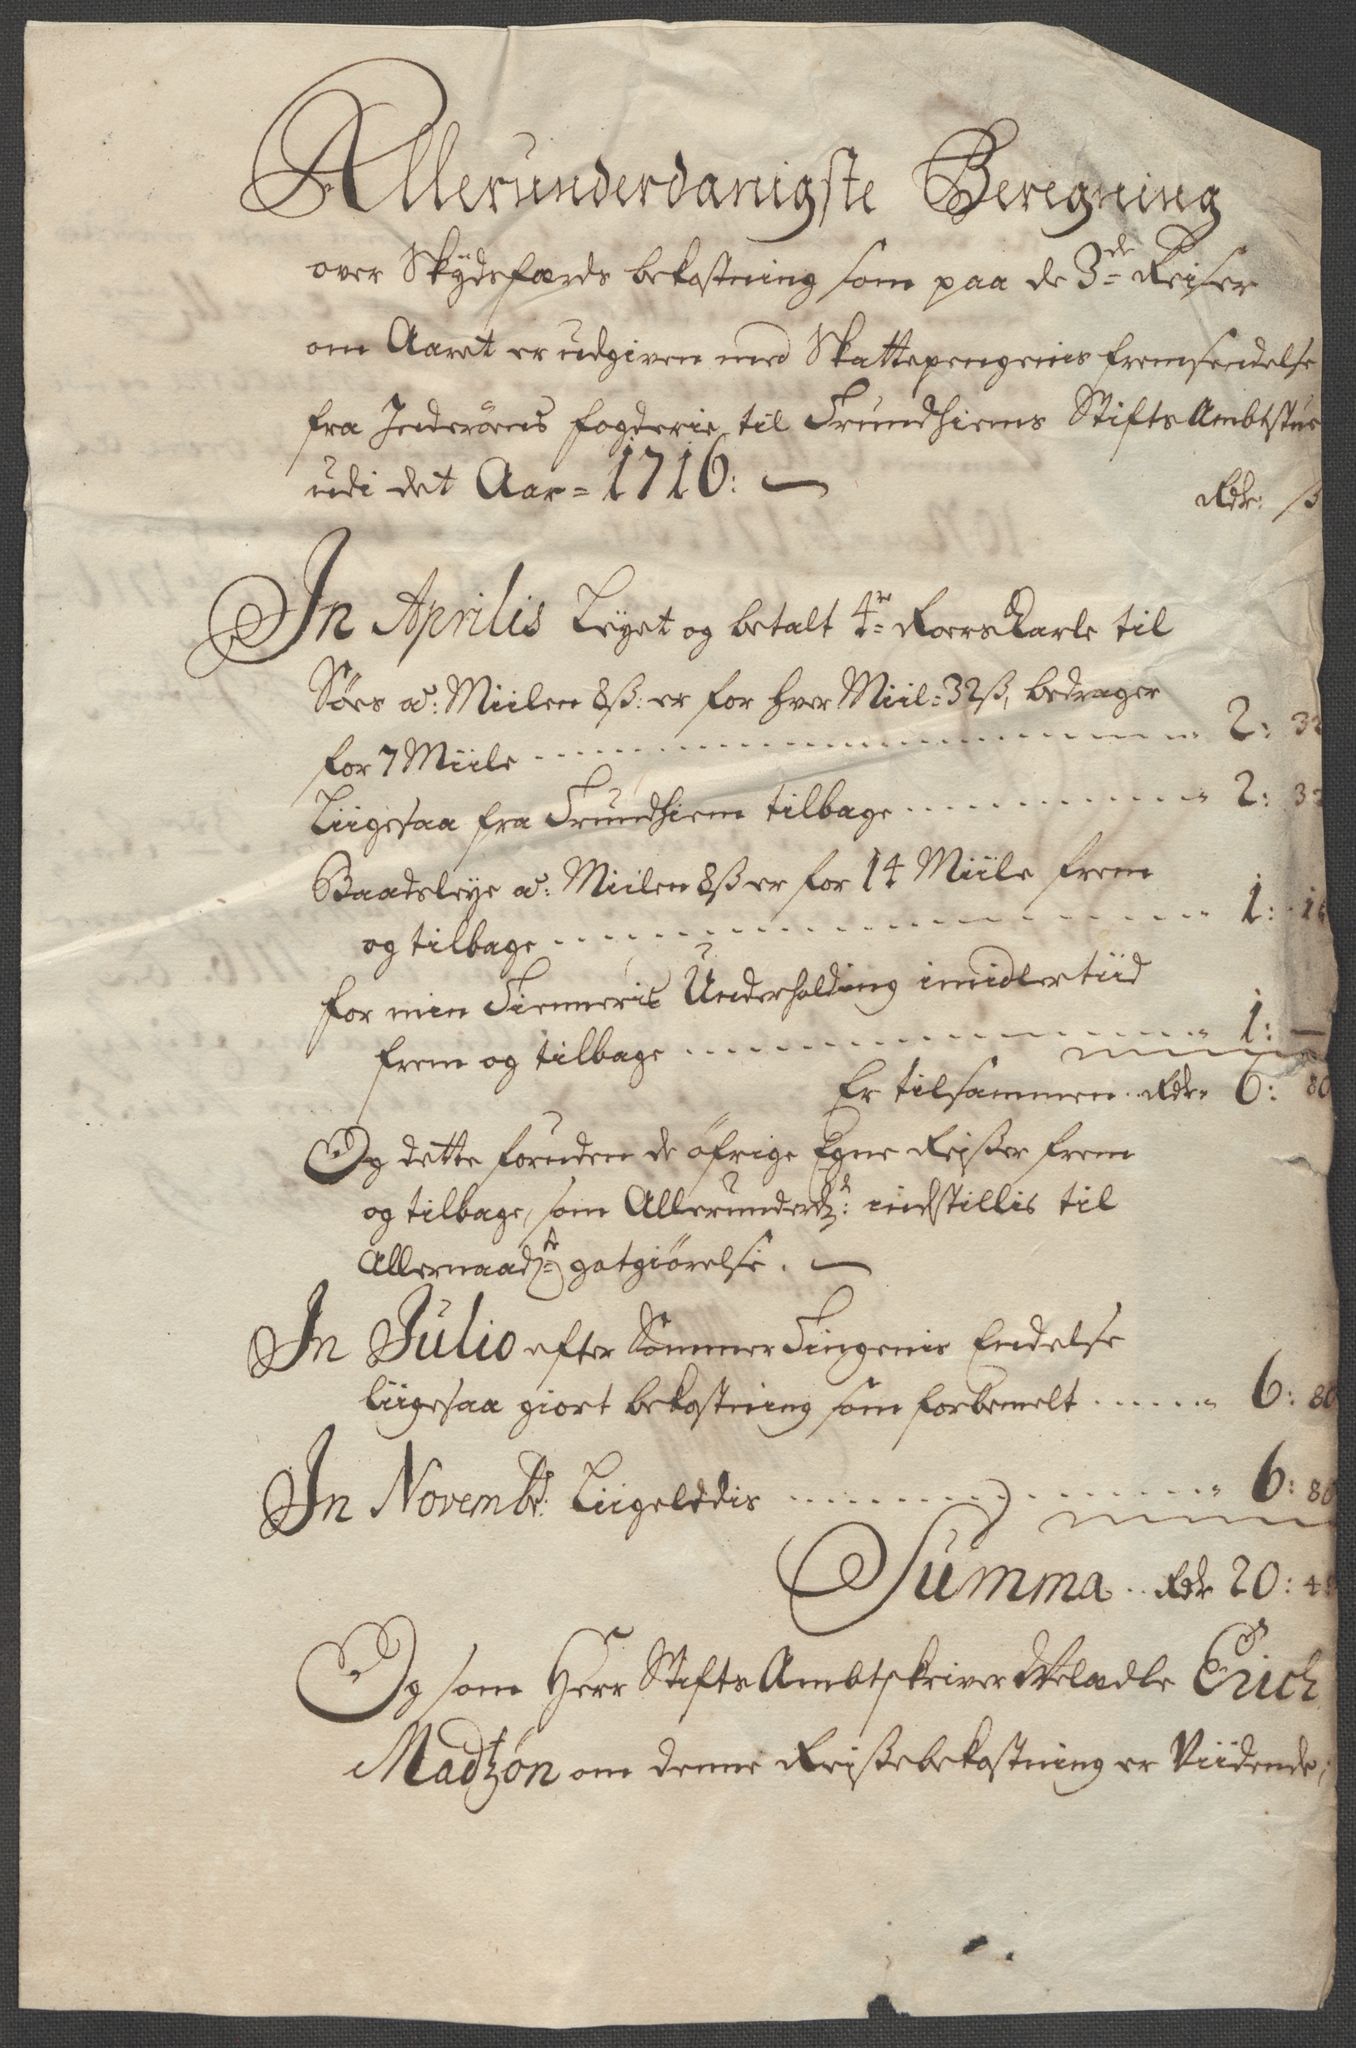 Allerunderdanigste Beregning
over Skydsfærds bekostning som paa de 3de Reiser
om Aaret er udgiven med Skattepengenis fremsendelse
fra Inderöens fogderie til Trundhiems StiftsAmbtstue
udi det Aar = 1716:
Rdr: ß
In Aprilis Leyet og betalt 4re RoersKarle til
Söes a: Miilen 8ß: er for hver Miil = 32ß, bedrager
for 7 Miile 2: 32
Liigesaa fra Trundhiem tilbage 2: 32
Baadsleye a: Miilen 8ß er for 14 Miile frem
og tilbage 1: 16
for min Tienneris Underholding imidlertiid
frem og tilbage 1: —
Er tilsammen Rdr 6: 80
Og dette foruden de öfrige Egne Reißer frem
og tilbage, som Allerunderdst: indstillis til
Allernaadste gotgiörelse.
In Julio efter Sommer Tingenis Endelse
liigesaa giort bekostning som forbemelt 6: 80
In Novembr: Liigeledis 6: 80
Summa Rdr 20: 48
Og som Herr StiftsAmbtskriver Velædle Erich
Madtzön om denne Reißebekostning er Viidende,